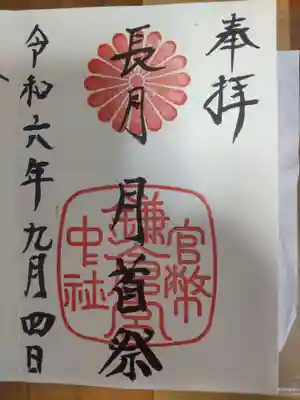 奉拝
長月 月首祭
官幣
鎌倉宮
中社
令和六年九月四日